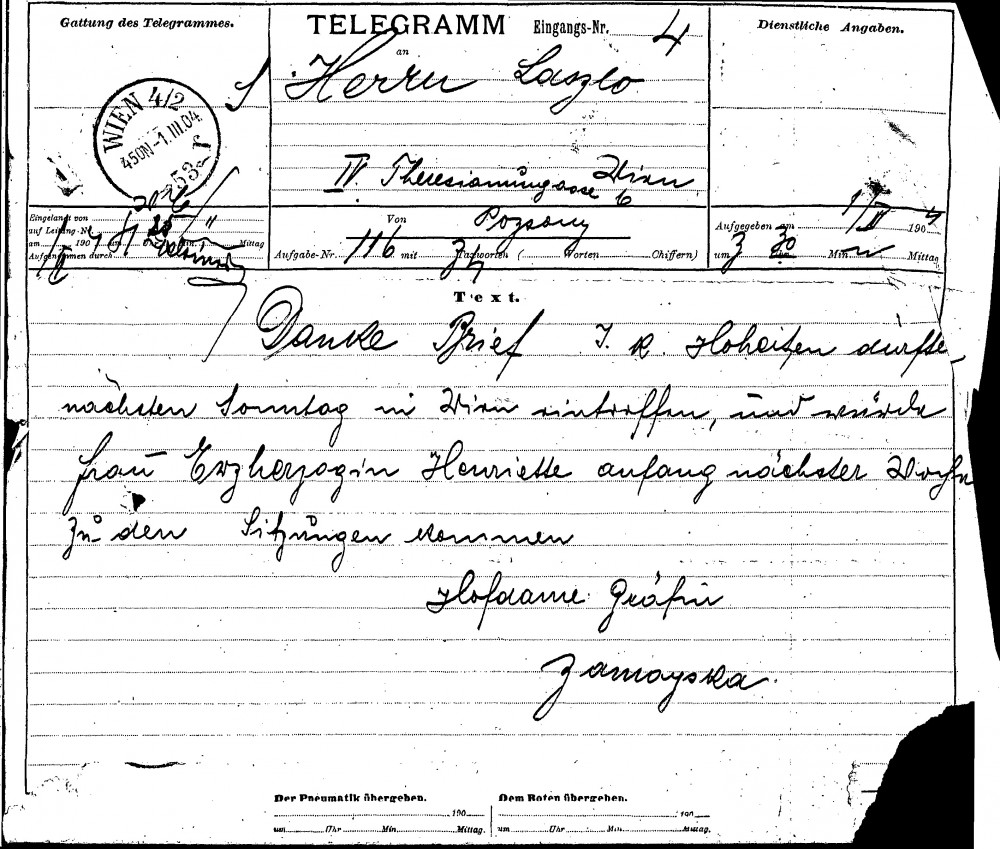 Gattung des Telegrammes.
TELEGRAMM Eingangs-Nr. 4
Dienstliche Angaben.
an
Herrn Laszlo
WIEN 4/2
450N -1.III.04
53
IV. Theresianumgasse 6 Wien
Eingelangt von
auf Leitung-Nr.
am 190 um Uhr Min. Mittag
Aufgenommen durch
Von Pozsony
Aufgabe-Nr. 116 mit 34 Taxworten ( Worten Chiffern)
Aufgegeben am 1/III 1904
um 3 Uhr 30 Min. n Mittag
Text.
Danke Brief I. k. Hoheiten dürfte,
nächsten Sonntag in Wien eintreffen, und würde
frau Erzherzogin Henriette anfang nächster Woche
zu den Sitzungen kommen
Hofdame Gräfin
Zamoyska.
Der Pneumatik übergeben.
190
um Uhr Min. Mittag.
Dem Boten übergeben.
190
um Uhr Min. Mittag.